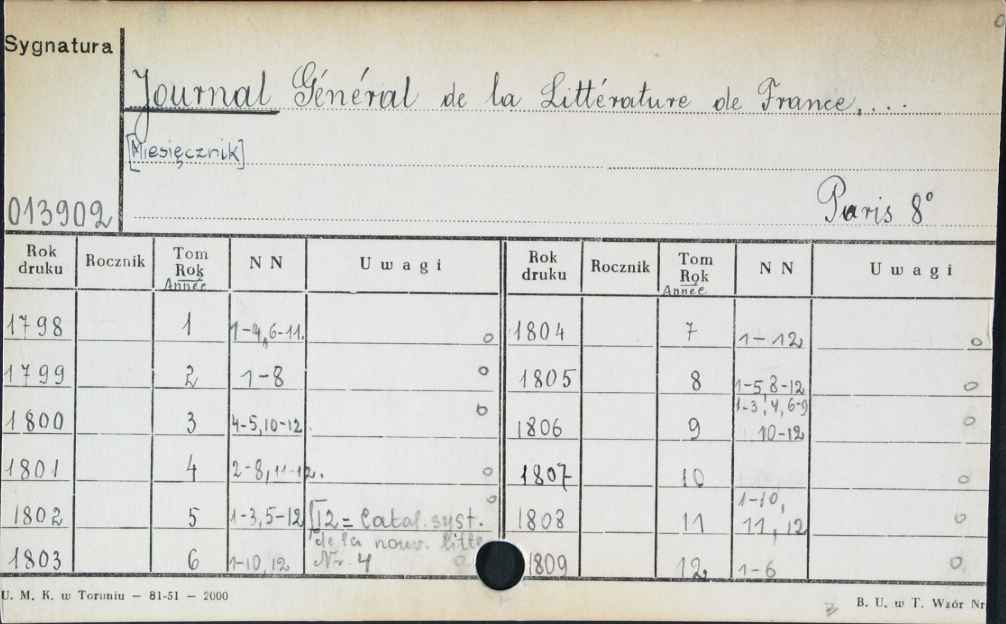 Sygnatura
Journal Général de la Littérature de France,....
[Miesięcznik]
013902
Paris 8°
Rok druku Rocznik Tom Rok Année NN Uwagi Rok druku Rocznik Tom Rok Année NN Uwagi
1798 1 1-4,6-11. o 1804 7 1-12 o
1799 2 1-8 o 1805 8 1-5,8-12 o
1800 3 4-5,10-12. o 1806 9 1-3,4,6-9 10-12 o
1801 4 2-8,11-12. o 1807 10 o
1802 5 1-3,5-12 o [12 = Catal. syst. 1808 11 1-10, 11, 12 o
de la nouv. litt.
1803 6 1-10,12 Nr. 4 o 1809 12 1-6 o
U. M. K. w Toruniu — 81-51 — 2000
B. U. w T. Wzór Nr